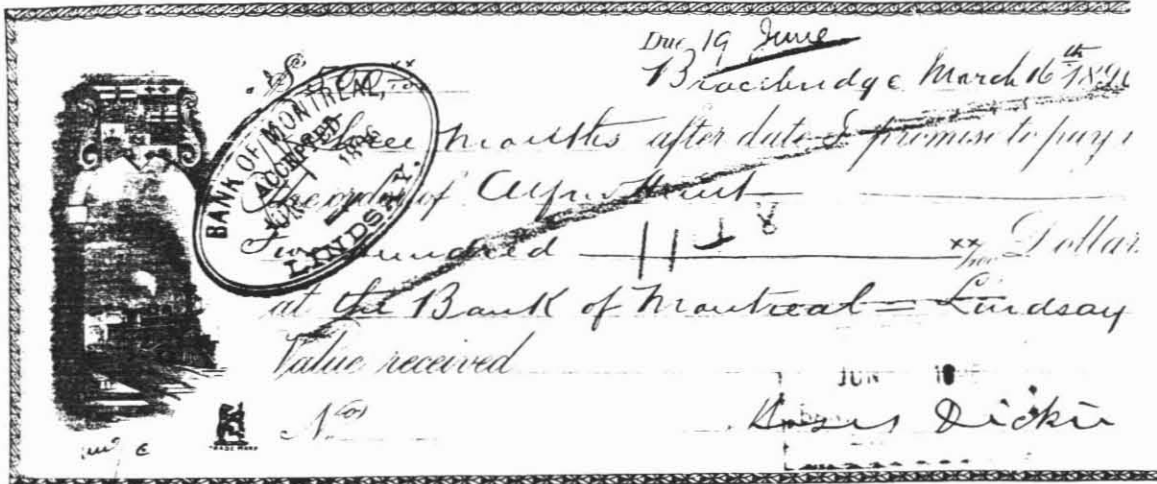 Due 19 June
Bracebridge March 16th 189
BANK OF MONTREAL,
ACCEPTED
1896
LINDSAY.
Three Months after date I promise to pay
the order of Alfred Hunt
Two Hundred xx/100 Dollar
at the Bank of Montreal = Lindsay
Value received
JUN
No
Dickie
TRADE MARK